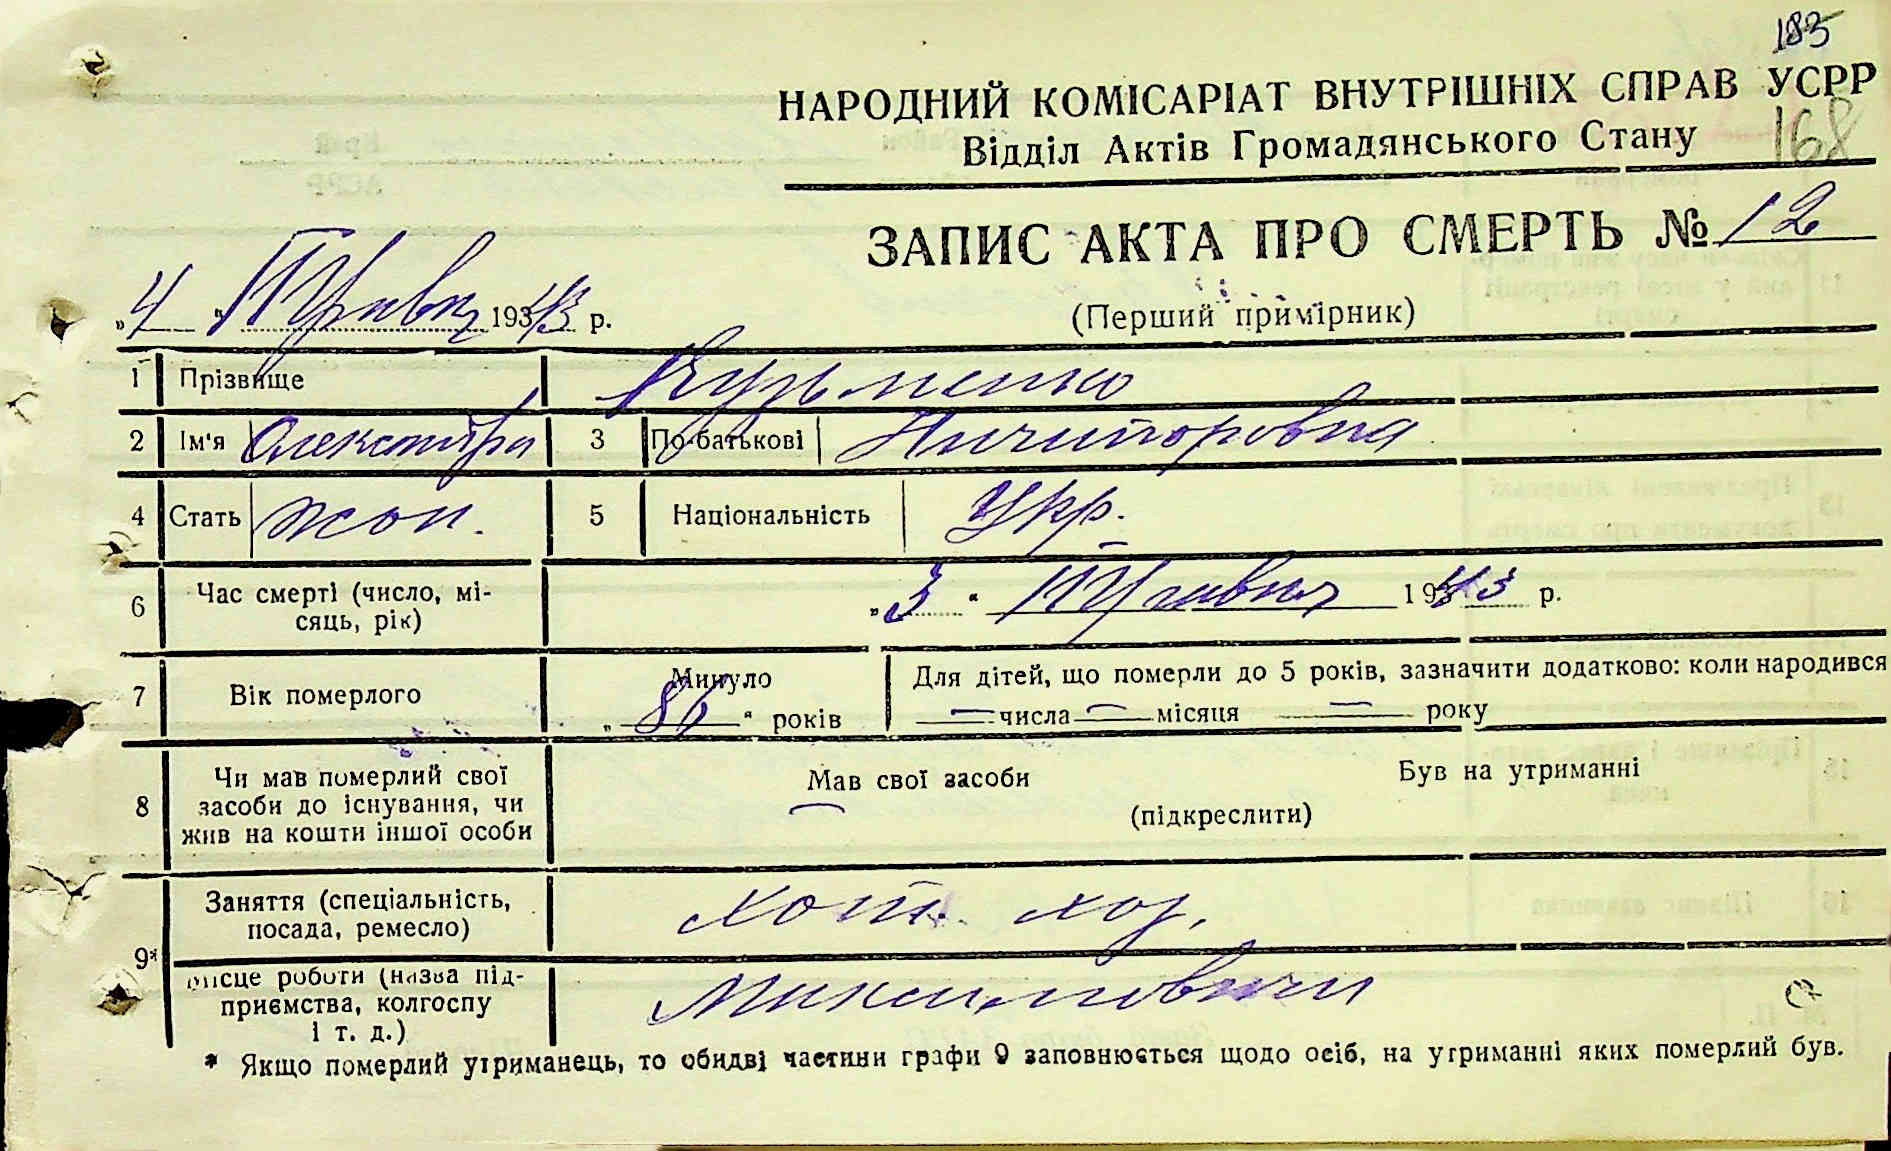 185
НАРОДНИЙ КОМІСАРІАТ ВНУТРІШНІХ СПРАВ УСРР
Відділ Актів Громадянського Стану 168
ЗАПИС АКТА ПРО СМЕРТЬ № 12
„4“ Травня 1943 р. (Перший примірник)
1 Прізвище Кузьменко
2 Ім'я Олександра 3 По-батькові Ничипоровна
4 Стать жон. 5 Національність Укр.
6 Час смерті (число, мі-
сяць, рік) „3“ Травня 1943 р.
7 Вік померлого Минуло „86“ років
Для дітей, що померли до 5 років, зазначити додатково: коли народився
— числа — місяця — року
8 Чи мав померлий свої
засоби до існування, чи
жив на кошти іншої особи
Мав свої засоби Був на утриманні
(підкреслити)
9* Заняття (спеціальність,
посада, ремесло)
місце роботи (назва під-
приємства, колгоспу
і т. д.)
* Якщо померлий утриманець, то обидві частини графи 9 заповнюється щодо осіб, на утриманні яких померлий був.